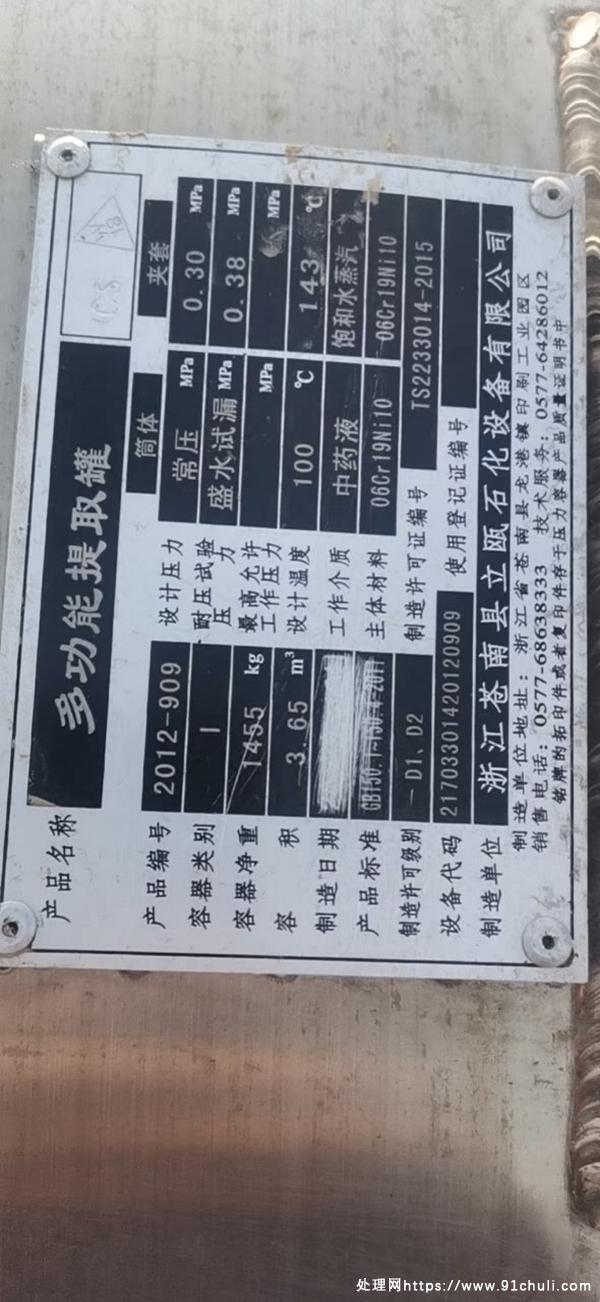 产品名称 多功能提取罐
筒体 夹套
产品编号 2012-909 设计压力 常压 MPa 0.30 MPa
容器类别 I 耐压试验压力 盛水试漏 MPa 0.38 MPa
容器净重 1455 kg 最高允许工作压力 MPa MPa
容积 3.65 m³ 设计温度 100 ℃ 143 ℃
制造日期 工作介质 中药液 饱和水蒸汽
产品标准 GB150.1~150.4-2011 主体材料 06Cr19Ni10 06Cr19Ni10
制造许可级别 D1、D2 制造许可证编号 TS2233014-2015
设备代码 21703301420120909 使用登记证编号
制造单位 浙江苍南县立瓯石化设备有限公司
制造单位地址：浙江省苍南县龙港镇印刷工业园区
销售电话：0577-68638333 技术服务：0577-64286012
铭牌的拓印件或者复印件存于压力容器产品质量证明书中
处理网https://www.91chuli.com